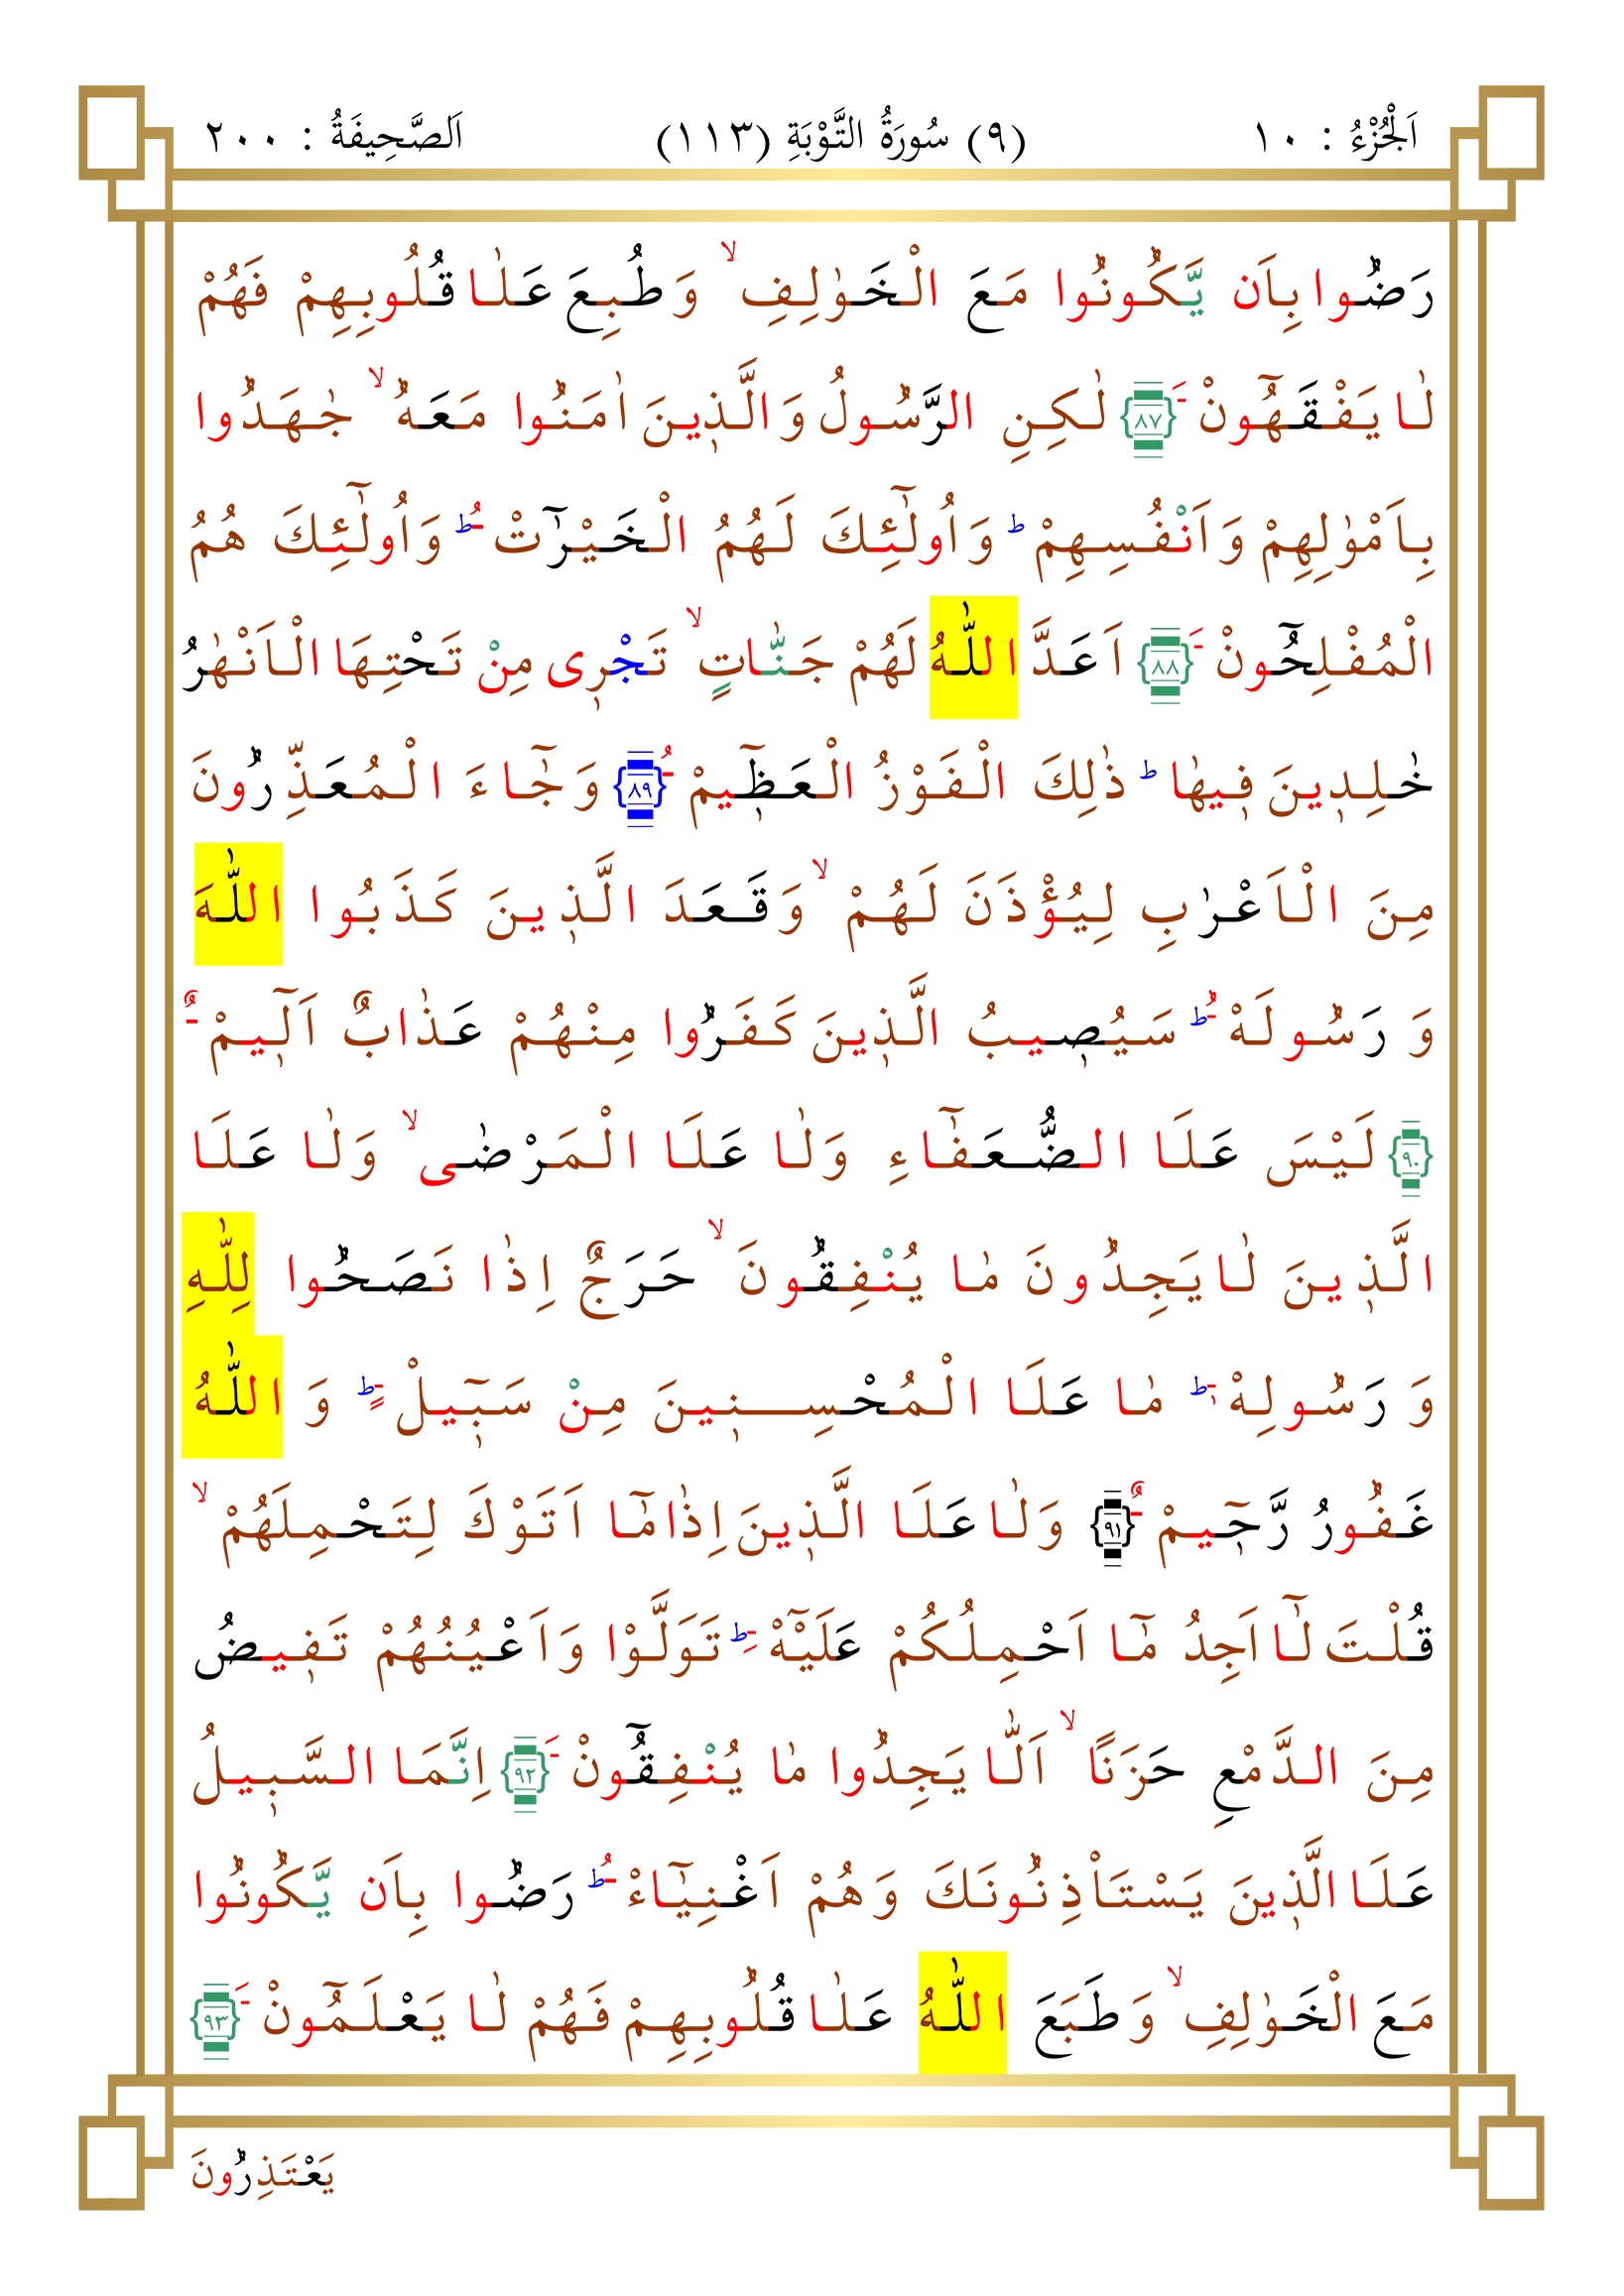 اَلْجُزْءُ : ١٠ (٩) سُورَةُ التَّوْبَةِ (١١٣) اَلصَّحِيفَةُ : ٢٠٠
رَضُوا بِاَن يَّكُونُوا مَعَ الْخَوٰلِفِ ۙ وَطُبِعَ عَلٰا قُلُوبِهِمْ فَهُمْ
لٰا يَفْقَهُٓونْ ـَ {٨٧} لٰكِنِ الرَّسُولُ وَالَّذ۪ينَ اٰمَنُوا مَعَهُ ۙ جٰهَدُوا
بِاَمْوٰلِهِمْ وَاَنْفُسِهِمْ ؕ وَاُولٰٓئِكَ لَهُمُ الْخَيْرٰٓتْ ـُ ؕ وَاُولٰٓئِكَ هُمُ
الْمُفْلِحُٓونْ ـَ {٨٨} اَعَدَّ اللّٰهُ لَهُمْ جَنّٰاتٍ ۙ تَجْر۪ى مِنْ تَحْتِهَا الْاَنْهٰرُ
خٰلِد۪ينَ ف۪يهٰا ؕ ذٰلِكَ الْفَوْزُ الْعَظ۪ٓيمْ ـُ {٨٩} وَجٰٓاءَ الْمُعَذِّرُونَ
مِنَ الْاَعْرٰبِ لِيُؤْذَنَ لَهُمْ ۙ وَقَعَدَ الَّذ۪ينَ كَذَبُوا اللّٰهَ
وَ رَسُولَهْ ـُ ؕ سَيُص۪يبُ الَّذ۪ينَ كَفَرُوا مِنْهُمْ عَذٰابٌ اَل۪ٓيمْ ـٌ
{٩٠} لَيْسَ عَلَا الضُّعَفٰٓاءِ وَلٰا عَلَا الْمَرْضٰى ۙ وَلٰا عَلَا
الَّذ۪ينَ لٰا يَجِدُونَ مٰا يُنْفِقُونَ ۙ حَرَجٌ اِذٰا نَصَحُوا لِلّٰهِ
وَ رَسُولِهْ ـِ ؕ مٰا عَلَا الْمُحْسِن۪ينَ مِنْ سَب۪ٓيلْ ـٍ ؕ وَ اللّٰهُ
غَفُورُ رَّح۪ٓيمْ ـٌ {٩١} وَلٰا عَلَا الَّذ۪ينَ اِذٰا مٰٓا اَتَوْكَ لِتَحْمِلَهُمْ ۙ
قُلْتَ لٰٓا اَجِدُ مٰٓا اَحْمِلُكُمْ عَلَيْٓهْ ـِ ؕ تَوَلَّوْا وَاَعْيُنُهُمْ تَف۪يضُ
مِنَ الدَّمْعِ حَزَنًا ۙ اَلّٰا يَجِدُوا مٰا يُنْفِقُٓونْ ـَ {٩٢} اِنَّمَا السَّب۪يلُ
عَلَا الَّذ۪ينَ يَسْتَاْذِنُونَكَ وَهُمْ اَغْنِيٰٓاءْ ـُ ؕ رَضُوا بِاَن يَّكُونُوا
مَعَ الْخَوٰلِفِ ۙ وَطَبَعَ اللّٰهُ عَلٰا قُلُوبِهِمْ فَهُمْ لٰا يَعْلَمُٓونْ ـَ {٩٣}
يَعْتَذِرُونَ